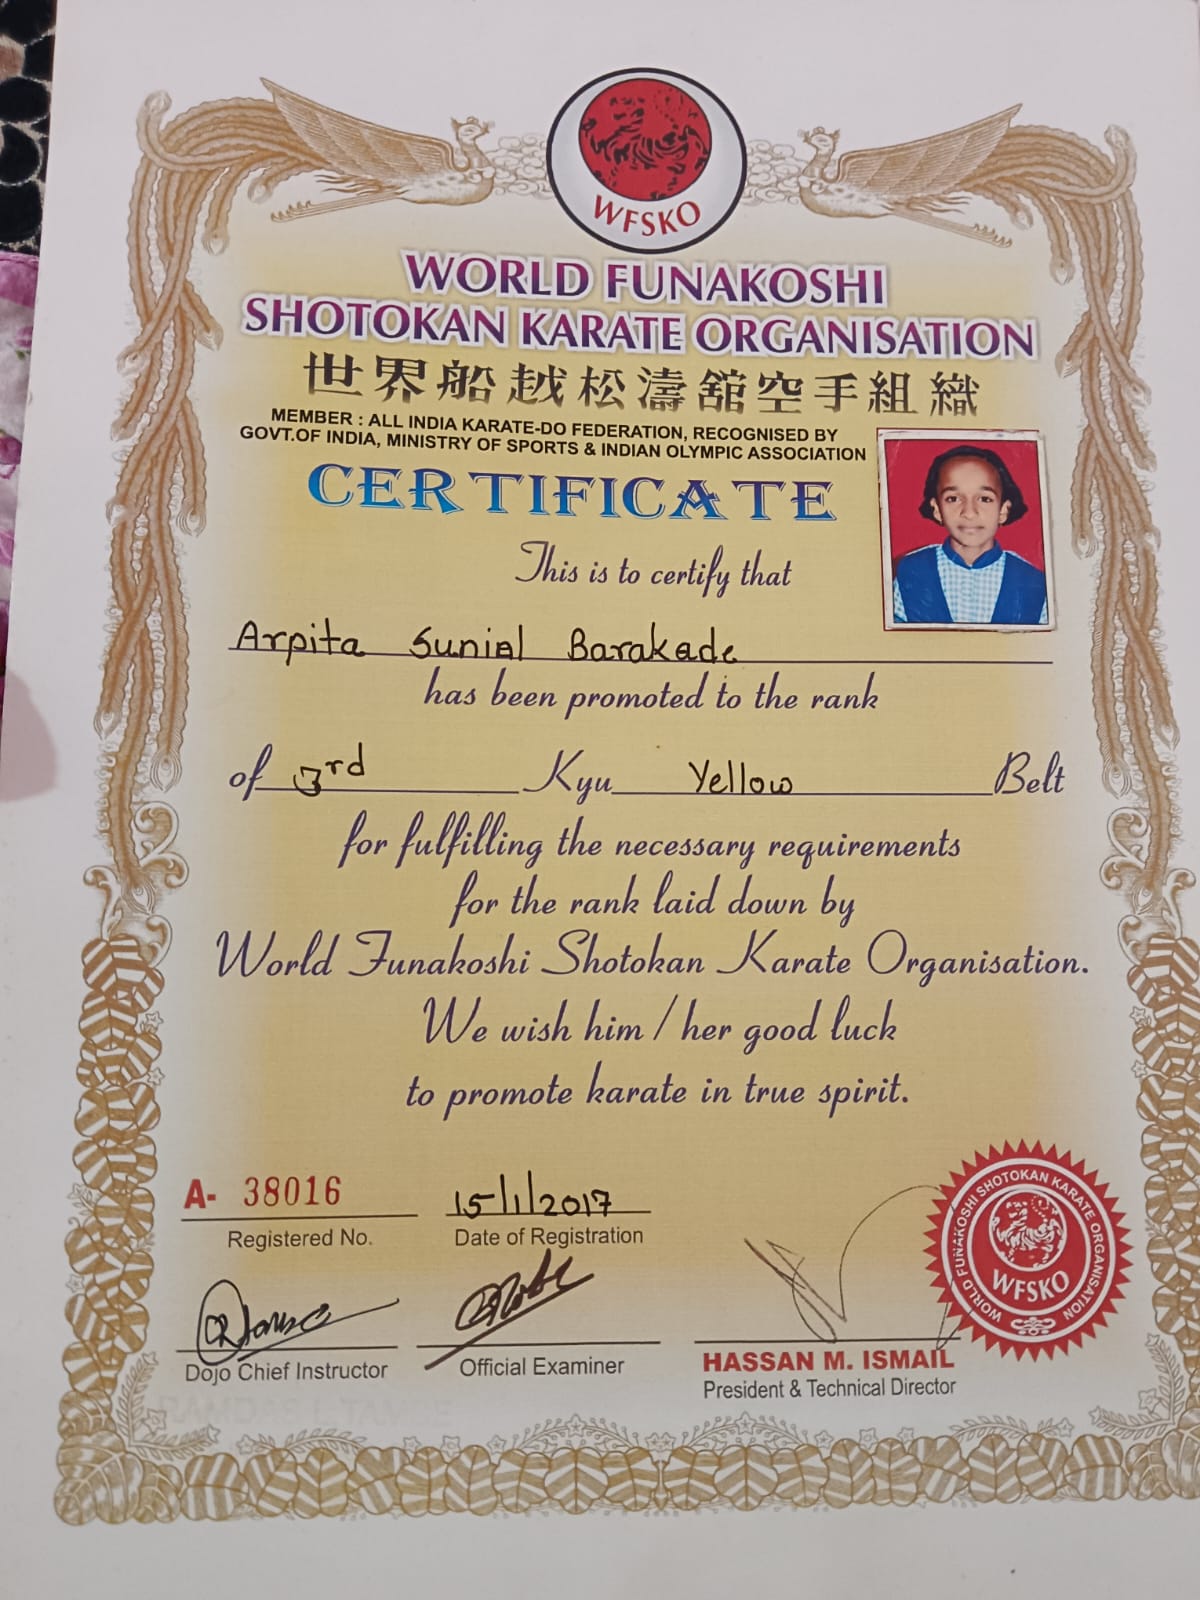 WFSKO
WORLD FUNAKOSHI
SHOTOKAN KARATE ORGANISATION
世界船越松濤舘空手組織
MEMBER : ALL INDIA KARATE-DO FEDERATION, RECOGNISED BY
GOVT.OF INDIA, MINISTRY OF SPORTS & INDIAN OLYMPIC ASSOCIATION
CERTIFICATE
This is to certify that
Arpita Barakade
has been promoted to the rank
of 3rd Kyu Yellow Belt
for fulfilling the necessary requirements
for the rank laid down by
World Funakoshi Shotokan Karate Organisation.
We wish him / her good luck
to promote karate in true spirit.
A- 38016
15/1/2017
Registered No.
Date of Registration
WORLD FUNAKOSHI SHOTOKAN KARATE ORGANISATION
WFSKO
Dojo Chief Instructor
Official Examiner
HASSAN M. ISMAIL
President & Technical Director